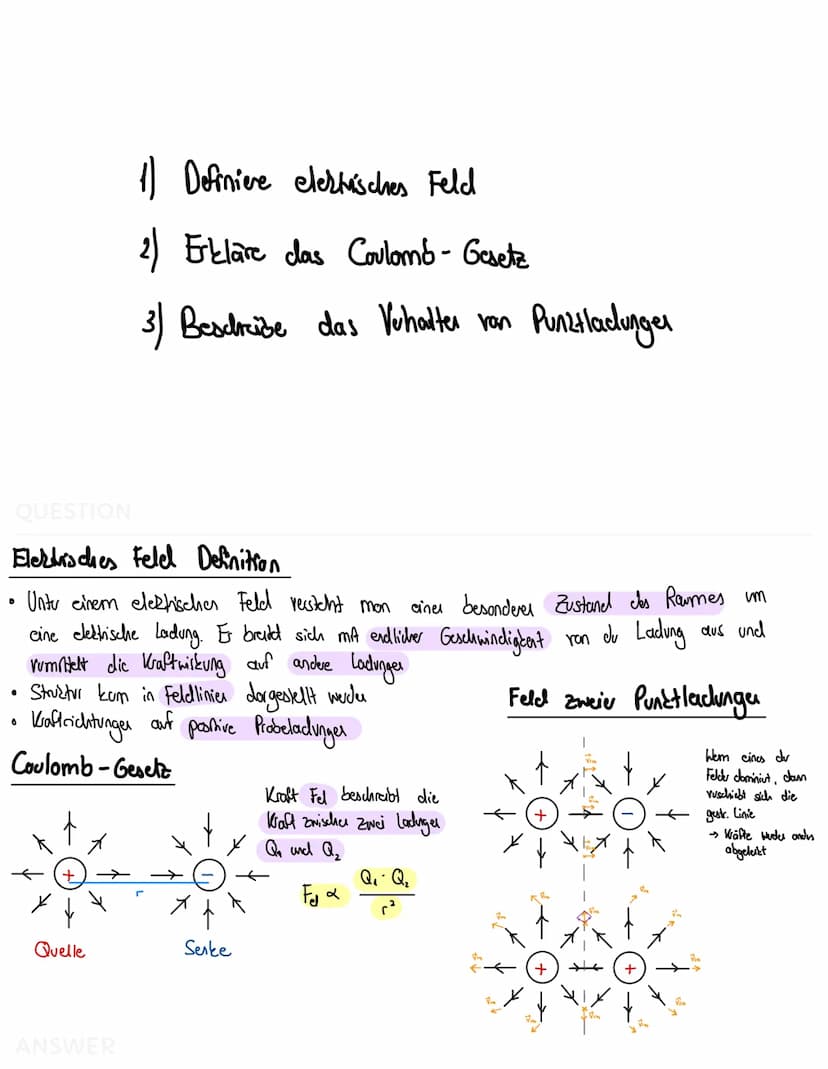 1) Definiere elektrisches Feld
2) Erkläre das Coulomb-Gesetz
3) Beschreibe das Verhalten von Punktladungen
QUESTION
Elektrisches Feld Definition
• Unter einem elektrischen Feld versteht man einen besonderen Zustand des Raumes um
eine elektrische Ladung. Er breitet sich mit endlicher Geschwindigkeit von der Ladung aus und
vermittelt die Kraftwirkung auf andere Ladungen
• Struktur kann in Feldlinien dargestellt werden
• Kraftrichtungen auf positive Probeladungen
Coulomb-Gesetz
Kraft Fel beschreibt die
Kraft zwischen zwei Ladungen
Q₁ und Q₂
Fel ∝ Q₁ · Q₂
r²
+
−
r
Quelle
Senke
Feld zweier Punktladungen
+
−
Wenn eines der
Felder dominiert, dann
verschiebt sich die
gestr. Linie
→ Kräfte werden anders
abgelenkt
+
+
ANSWER